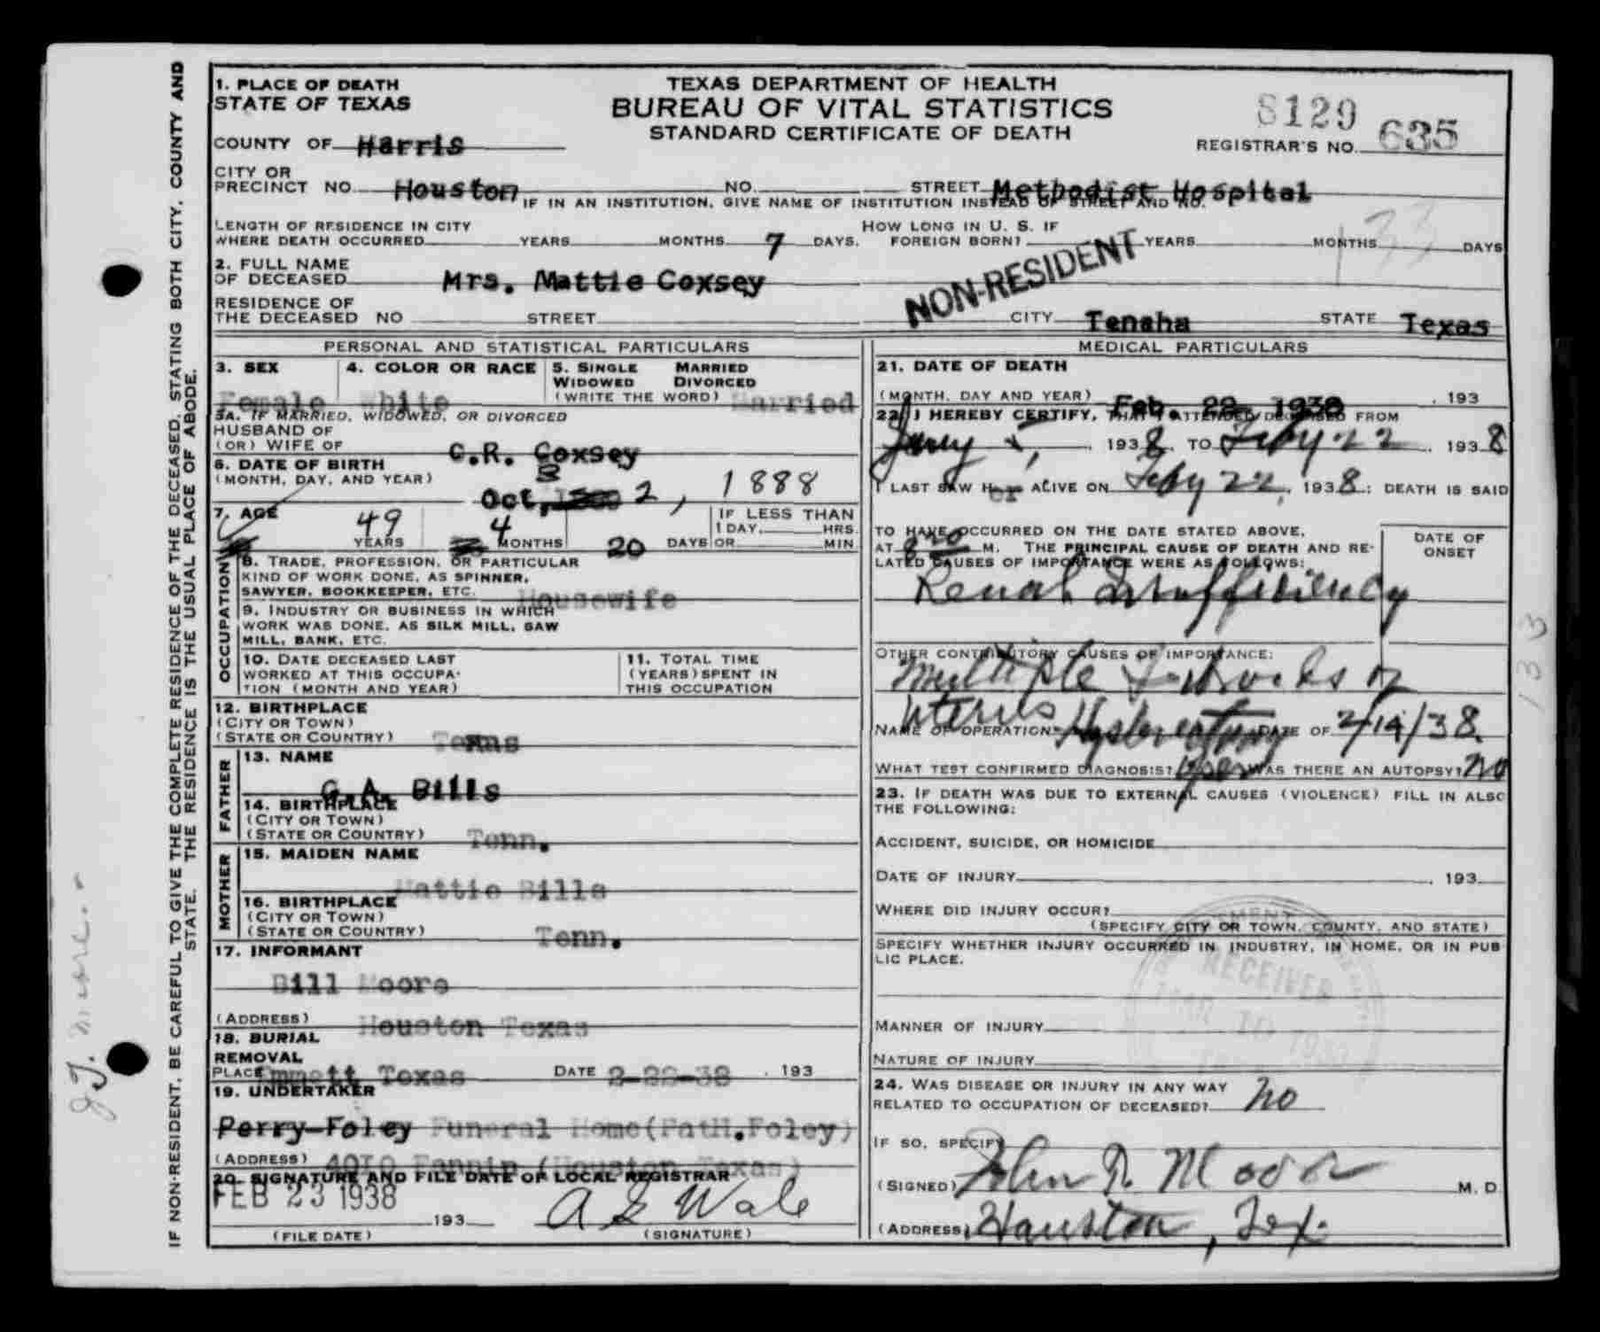 1. PLACE OF DEATH
STATE OF TEXAS
TEXAS DEPARTMENT OF HEALTH
BUREAU OF VITAL STATISTICS
STANDARD CERTIFICATE OF DEATH
8129
COUNTY OF Harris
REGISTRAR'S NO. 635
CITY OR
PRECINCT NO. Houston NO. STREET Methodist Hospital
IF IN AN INSTITUTION, GIVE NAME OF INSTITUTION INSTEAD OF STREET AND NO.
LENGTH OF RESIDENCE IN CITY
WHERE DEATH OCCURRED YEARS MONTHS 7 DAYS.
HOW LONG IN U. S. IF
FOREIGN BORN? YEARS MONTHS DAYS
133
2. FULL NAME
OF DECEASED Mrs. Mattie Coxsey
NON-RESIDENT
RESIDENCE OF
THE DECEASED NO STREET CITY Tenaha STATE Texas
PERSONAL AND STATISTICAL PARTICULARS
3. SEX
Female
4. COLOR OR RACE
White
5. SINGLE MARRIED
WIDOWED DIVORCED
(WRITE THE WORD) Married
5A. IF MARRIED, WIDOWED, OR DIVORCED
HUSBAND OF
(OR) WIFE OF C.R. Coxsey
6. DATE OF BIRTH
(MONTH, DAY, AND YEAR) Oct, 2, 1888
7. AGE
49 YEARS 4 MONTHS 20 DAYS
IF LESS THAN
1 DAY HRS.
OR MIN
OCCUPATION
8. TRADE, PROFESSION, OR PARTICULAR
KIND OF WORK DONE, AS SPINNER,
SAWYER, BOOKKEEPER, ETC. Housewife
9. INDUSTRY OR BUSINESS IN WHICH
WORK WAS DONE, AS SILK MILL, SAW
MILL, BANK, ETC.
10. DATE DECEASED LAST
WORKED AT THIS OCCUPA-
TION (MONTH AND YEAR)
11. TOTAL TIME
(YEARS) SPENT IN
THIS OCCUPATION
12. BIRTHPLACE
(CITY OR TOWN)
(STATE OR COUNTRY) Texas
FATHER
13. NAME
G.A. Bills
14. BIRTHPLACE
(CITY OR TOWN)
(STATE OR COUNTRY) Tenn.
MOTHER
15. MAIDEN NAME
Mattie Bills
16. BIRTHPLACE
(CITY OR TOWN)
(STATE OR COUNTRY) Tenn.
17. INFORMANT
Bill Moore
(ADDRESS) Houston Texas
18. BURIAL
REMOVAL
PLACE Emmett Texas DATE 2-22-38 , 193
19. UNDERTAKER
Perry-Foley Funeral Home(PatH.Foley)
(ADDRESS) 4010 Fannin (Houston Texas)
20. SIGNATURE AND FILE DATE OF LOCAL REGISTRAR
FEB 23 1938
193
(FILE DATE)
(SIGNATURE)
MEDICAL PARTICULARS
21. DATE OF DEATH
(MONTH, DAY AND YEAR) Feb. 22, 1938 , 193
22. I HEREBY CERTIFY, THAT I ATTENDED DECEASED FROM
1938 TO Feby 22 , 1938
I LAST SAW HER ALIVE ON Feby 22, 1938; DEATH IS SAID
TO HAVE OCCURRED ON THE DATE STATED ABOVE,
AT M. THE PRINCIPAL CAUSE OF DEATH AND RE-
LATED CAUSES OF IMPORTANCE WERE AS FOLLOWS:
DATE OF
ONSET
Renal Insufficiency
OTHER CONTRIBUTORY CAUSES OF IMPORTANCE:
Multiple Fibroids of
Uterus
NAME OF OPERATION Hysterectomy DATE OF 2/14/38.
WHAT TEST CONFIRMED DIAGNOSIS? WAS THERE AN AUTOPSY? No
23. IF DEATH WAS DUE TO EXTERNAL CAUSES (VIOLENCE) FILL IN ALSO
THE FOLLOWING:
ACCIDENT, SUICIDE, OR HOMICIDE
DATE OF INJURY , 193
WHERE DID INJURY OCCUR?
(SPECIFY CITY OR TOWN, COUNTY, AND STATE)
SPECIFY WHETHER INJURY OCCURRED IN INDUSTRY, IN HOME, OR IN PUB
LIC PLACE.
RECEIVED
MAR 10 1938
MANNER OF INJURY
NATURE OF INJURY
24. WAS DISEASE OR INJURY IN ANY WAY
RELATED TO OCCUPATION OF DECEASED? No
IF SO, SPECIFY
(SIGNED) M. D.
(ADDRESS) Houston, Tex.
IF NON-RESIDENT, BE CAREFUL TO GIVE THE COMPLETE RESIDENCE OF THE DECEASED, STATING BOTH CITY, COUNTY AND
STATE. THE RESIDENCE IS THE USUAL PLACE OF ABODE.
133